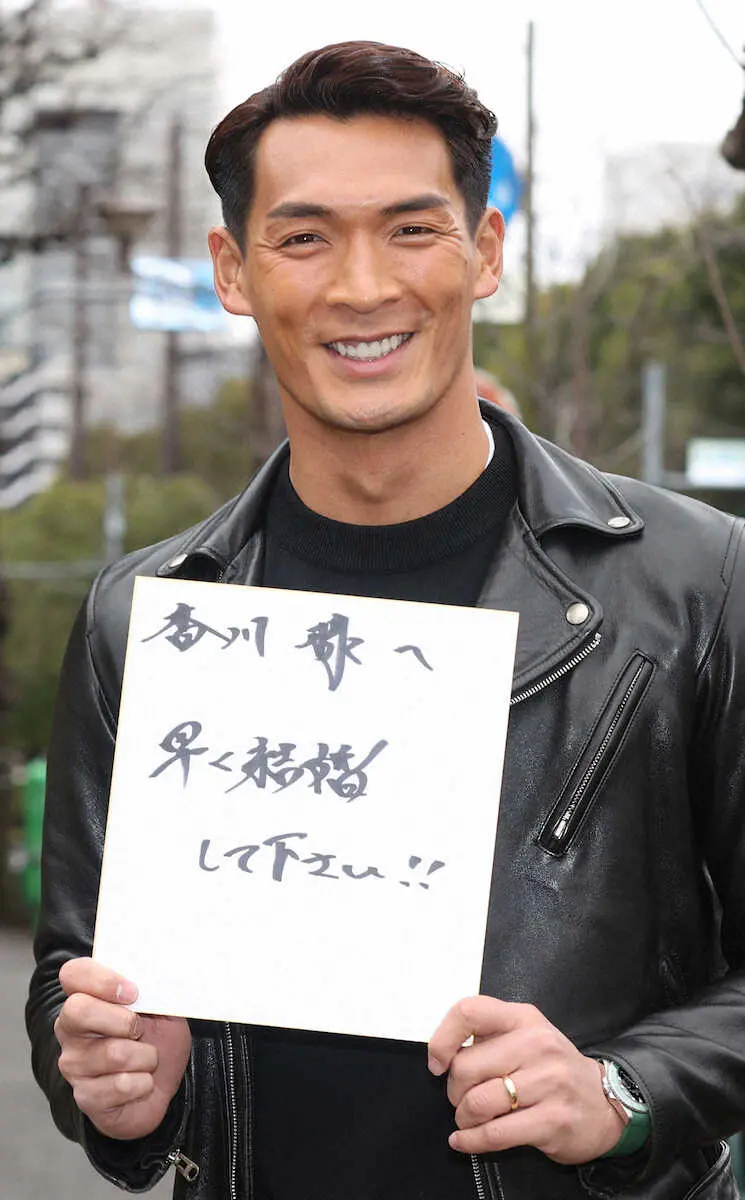 香川 へ
早く結婚
して下さい!!